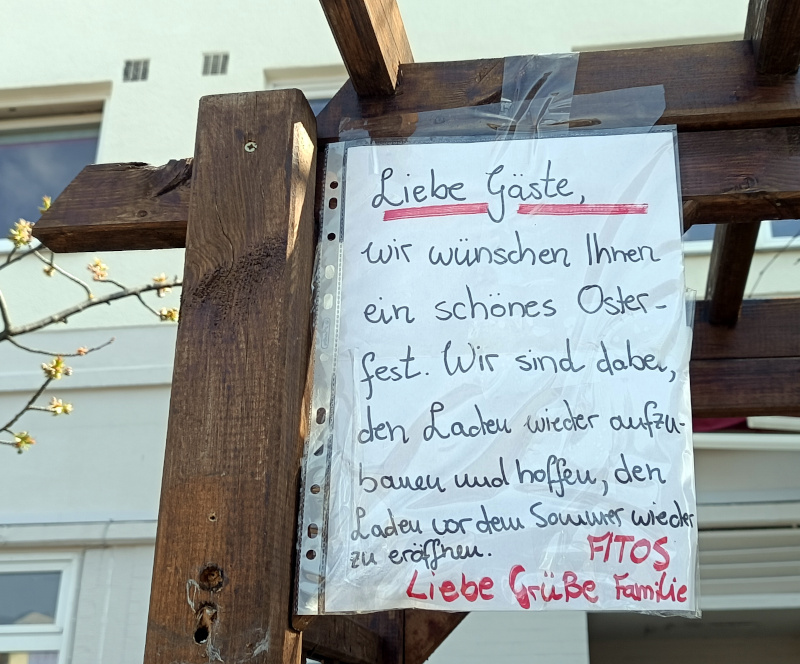 Liebe Gäste,
wir wünschen Ihnen
ein schönes Oster-
fest. Wir sind dabei,
den Laden wieder aufzu-
bauen und hoffen, den
Laden vor dem Sommer wieder
zu eröffnen.
FITOS
Liebe Grüße Familie